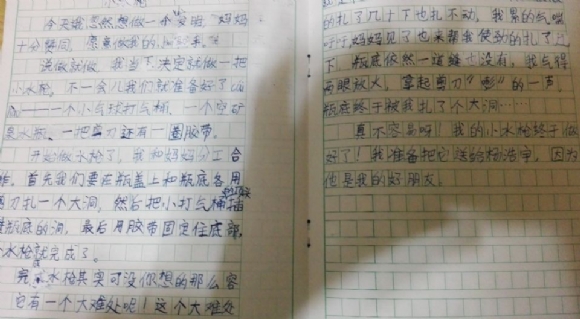 小水枪
今天我忽然想做一个水枪,妈妈
十分赞同,愿意做我的
说做就做,我当下决定就做一把
小水枪,不一会儿我们就准备好了
一个小气球打气机,一个空矿
泉水瓶、一把剪刀还有一圈胶带。
开始做水枪了,我和妈妈分工合
作。首先我们要在瓶盖上和瓶底各用
剪刀扎一个大洞,然后把小打气桶插
进瓶底的洞,最后用胶带固定住底部,
小水枪就完成了。
完成水枪其实可没你想的那么容
它有一个大难处呢!这个大难处
的扎了几十下也扎不动,我累的气喘
吁吁,妈妈见了也来帮我使劲的扎了几
下,瓶底依然一道缝也没有。我气得
两眼放火,拿起剪刀“嘭”的一声,
瓶底终于被我扎了个大洞……
真不容易呀!我的小水枪终于做
好了!我准备把它送给杨浩宇,因为
他是我的好朋友。